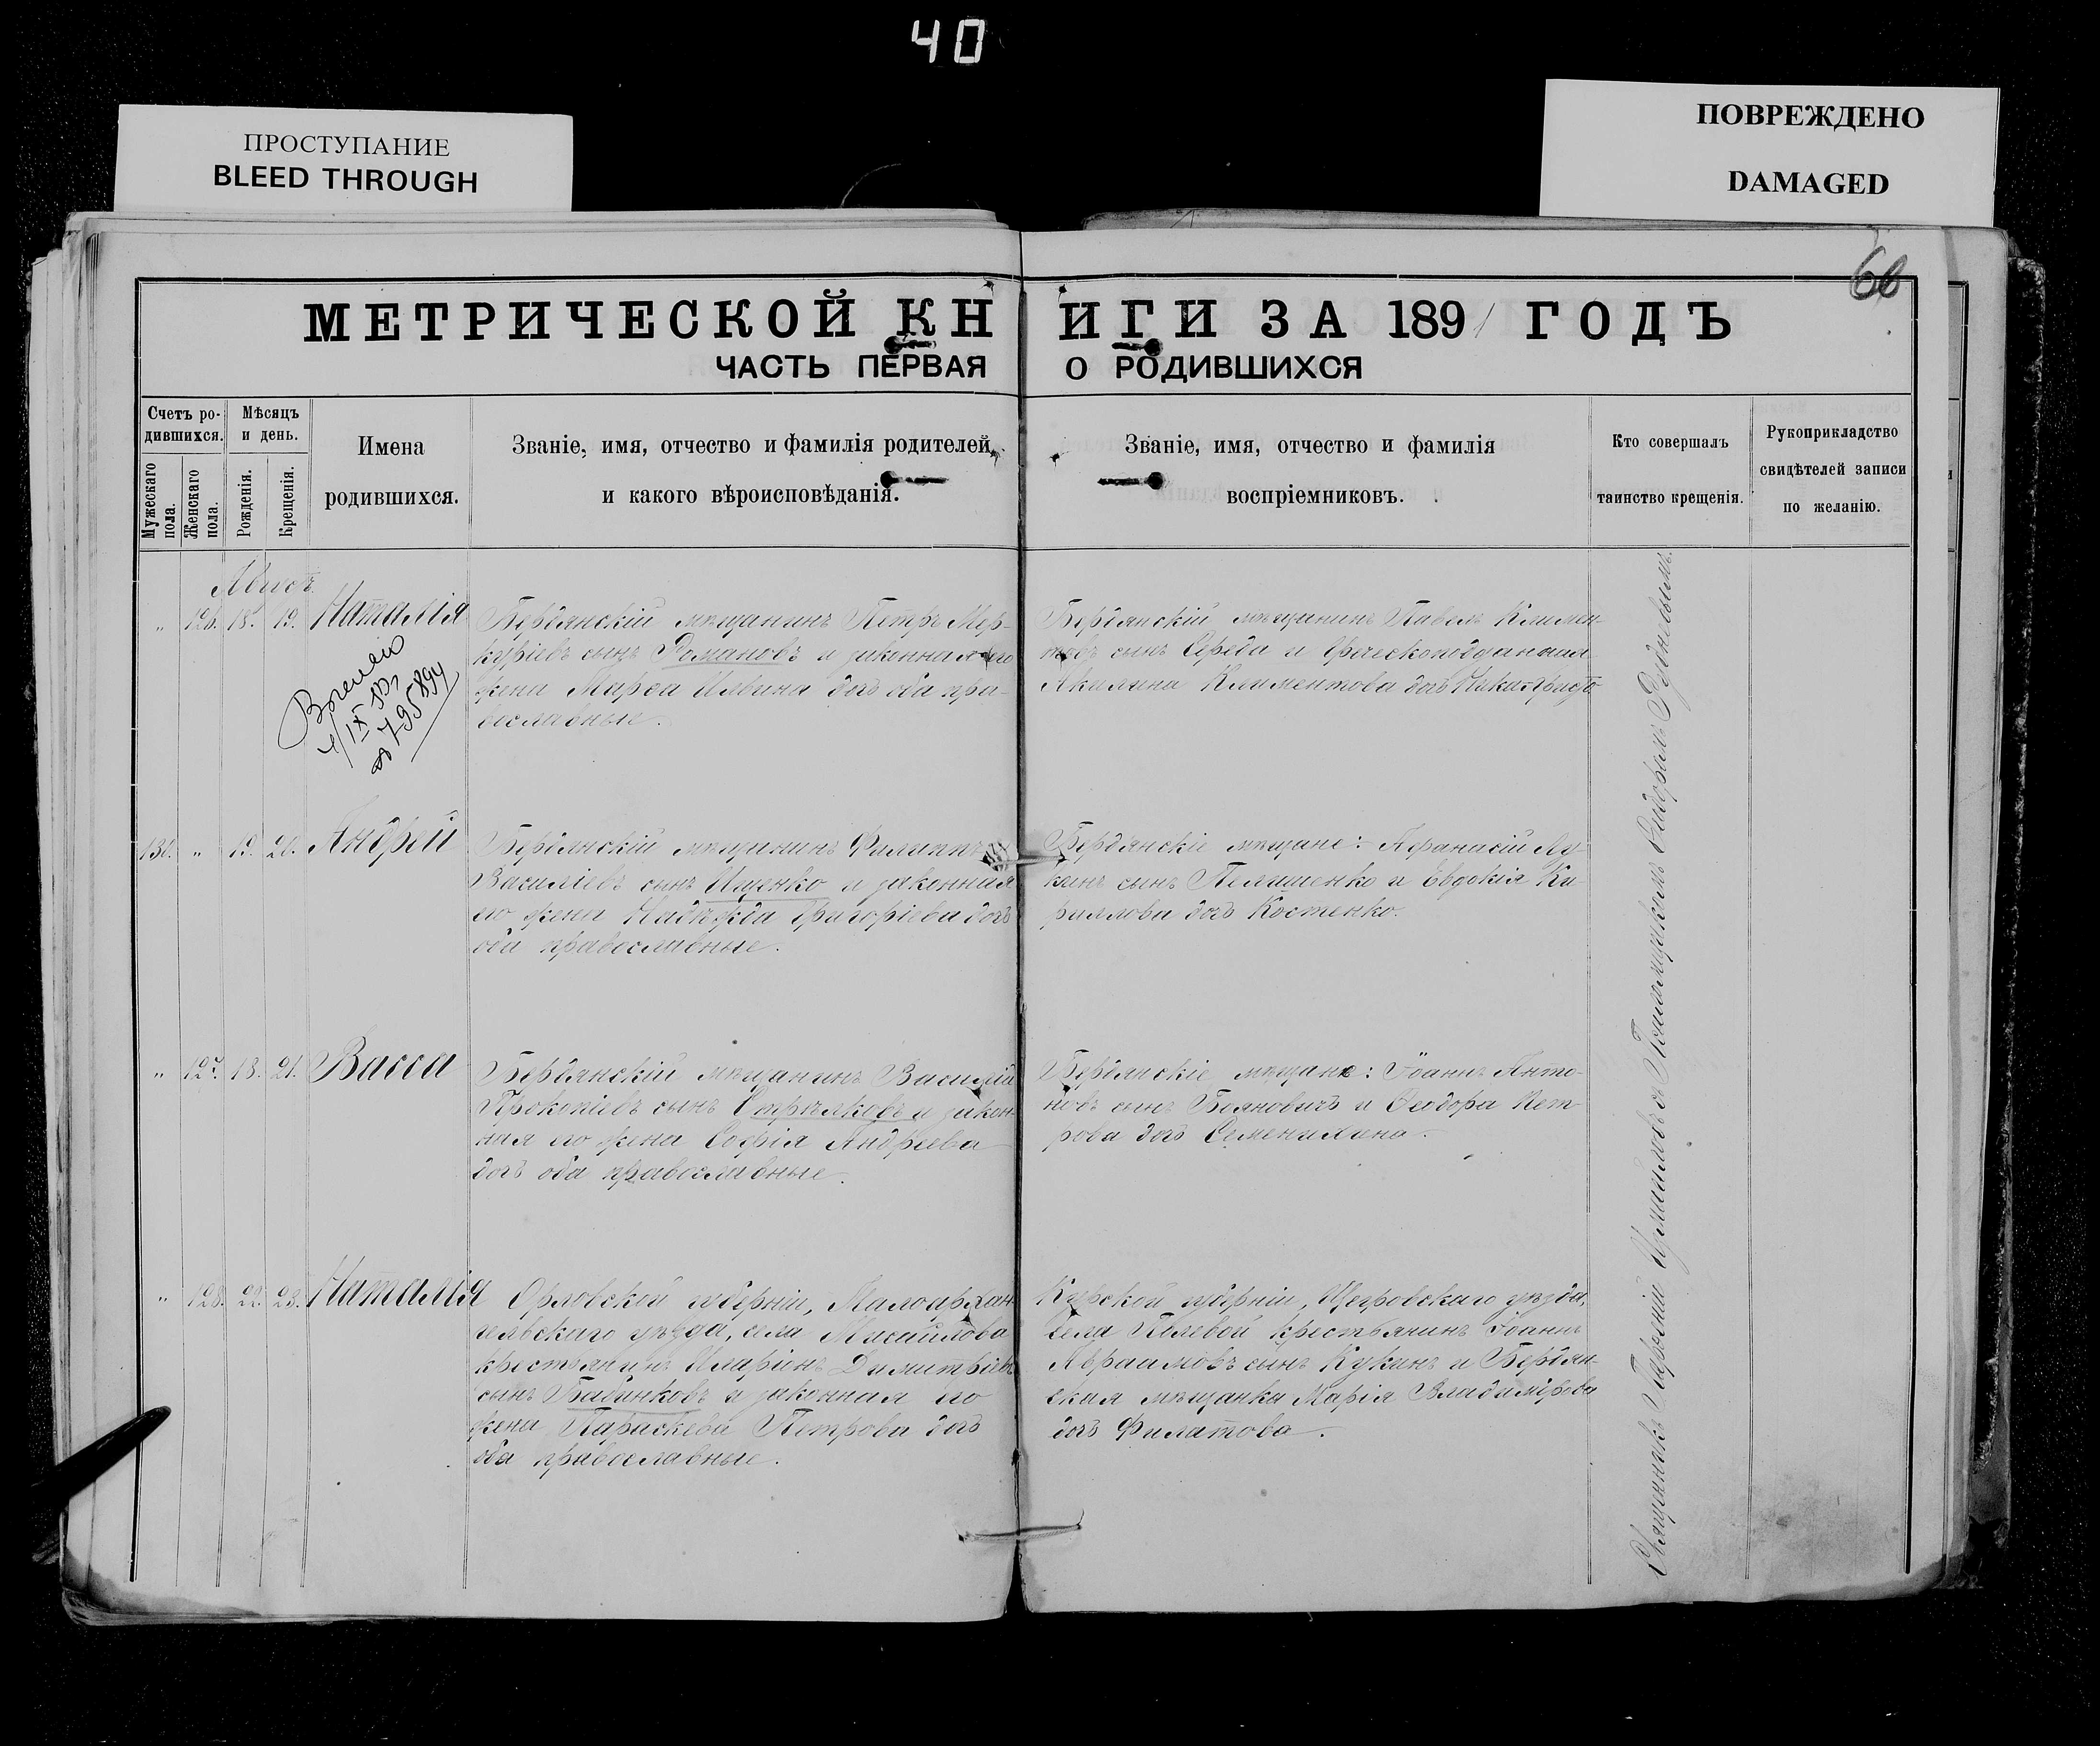 40
ПРОСТУПАНИЕ
BLEED THROUGH
ПОВРЕЖДЕНО
DAMAGED
МЕТРИЧЕСКОЙ КНИГИ ЗА 1891 ГОДЪ
ЧАСТЬ ПЕРВАЯ О РОДИВШИХСЯ
Счетъ ро-
дившихся.
Мужескаго
пола.
Женскаго
пола.
Мѣсяцъ
и день.
Рожденія.
Крещенія.
Имена
родившихся.
Званіе, имя, отчество и фамилія родителей,
и какого вѣроисповѣданія.
Званіе, имя, отчество и фамилія
воспріемниковъ.
Кто совершалъ
таинство крещенія.
Рукоприкладство
свидѣтелей записи
по желанію.
Августъ
" 126. 18. 19. Наталія
Бердянскій мѣщанинъ Петръ Мер-
куріевъ сынъ Романовъ и законная его
жена Марѳа Ильина дочь оба пра-
вославные.
Бердянскій мѣщанинъ Павелъ Климен-
товъ сынъ Середа и Греческоподданная
Акилина Климентова дочь
795894
" 19. 20. Андрей
Бердянскій мѣщанинъ Филиппъ
Василіевъ сынъ Ищенко и законная
его жена Надежда Григоріева дочь
оба православные.
Бердянскіе мѣщане: Аѳанасій Лу-
кинъ сынъ Пелишенко и Евдокія Ки-
риллова дочь Костенко.
" 127. 18. 21. Васса
Бердянскій мѣщанинъ Василій
Прокопіевъ сынъ Стрѣлковъ и закон-
ная его жена Софія Андреева
дочь оба православные.
Бердянскіе мѣщане: Іоаннъ Анто-
новъ сынъ Бояновичъ и Ѳеодора Пет-
рова дочь
" 128. 22. 23. Наталія
Орловской губерніи, Малоархан-
гельскаго уѣзда, села Мисайлова
крестьянинъ Иларіонъ Димитріевъ
сынъ и законная его
жена Параскева Петрова дочь
оба православные.
Курской губерніи, Щигровскаго уѣзда,
села крестьянинъ Іоаннъ
Авраамовъ сынъ Кукинъ и Бердян-
ская мѣщанка Марія Владимірова
дочь Филатова.
Священникъ Парѳеній Измаиловъ съ Псаломщикомъ Рудневымъ.